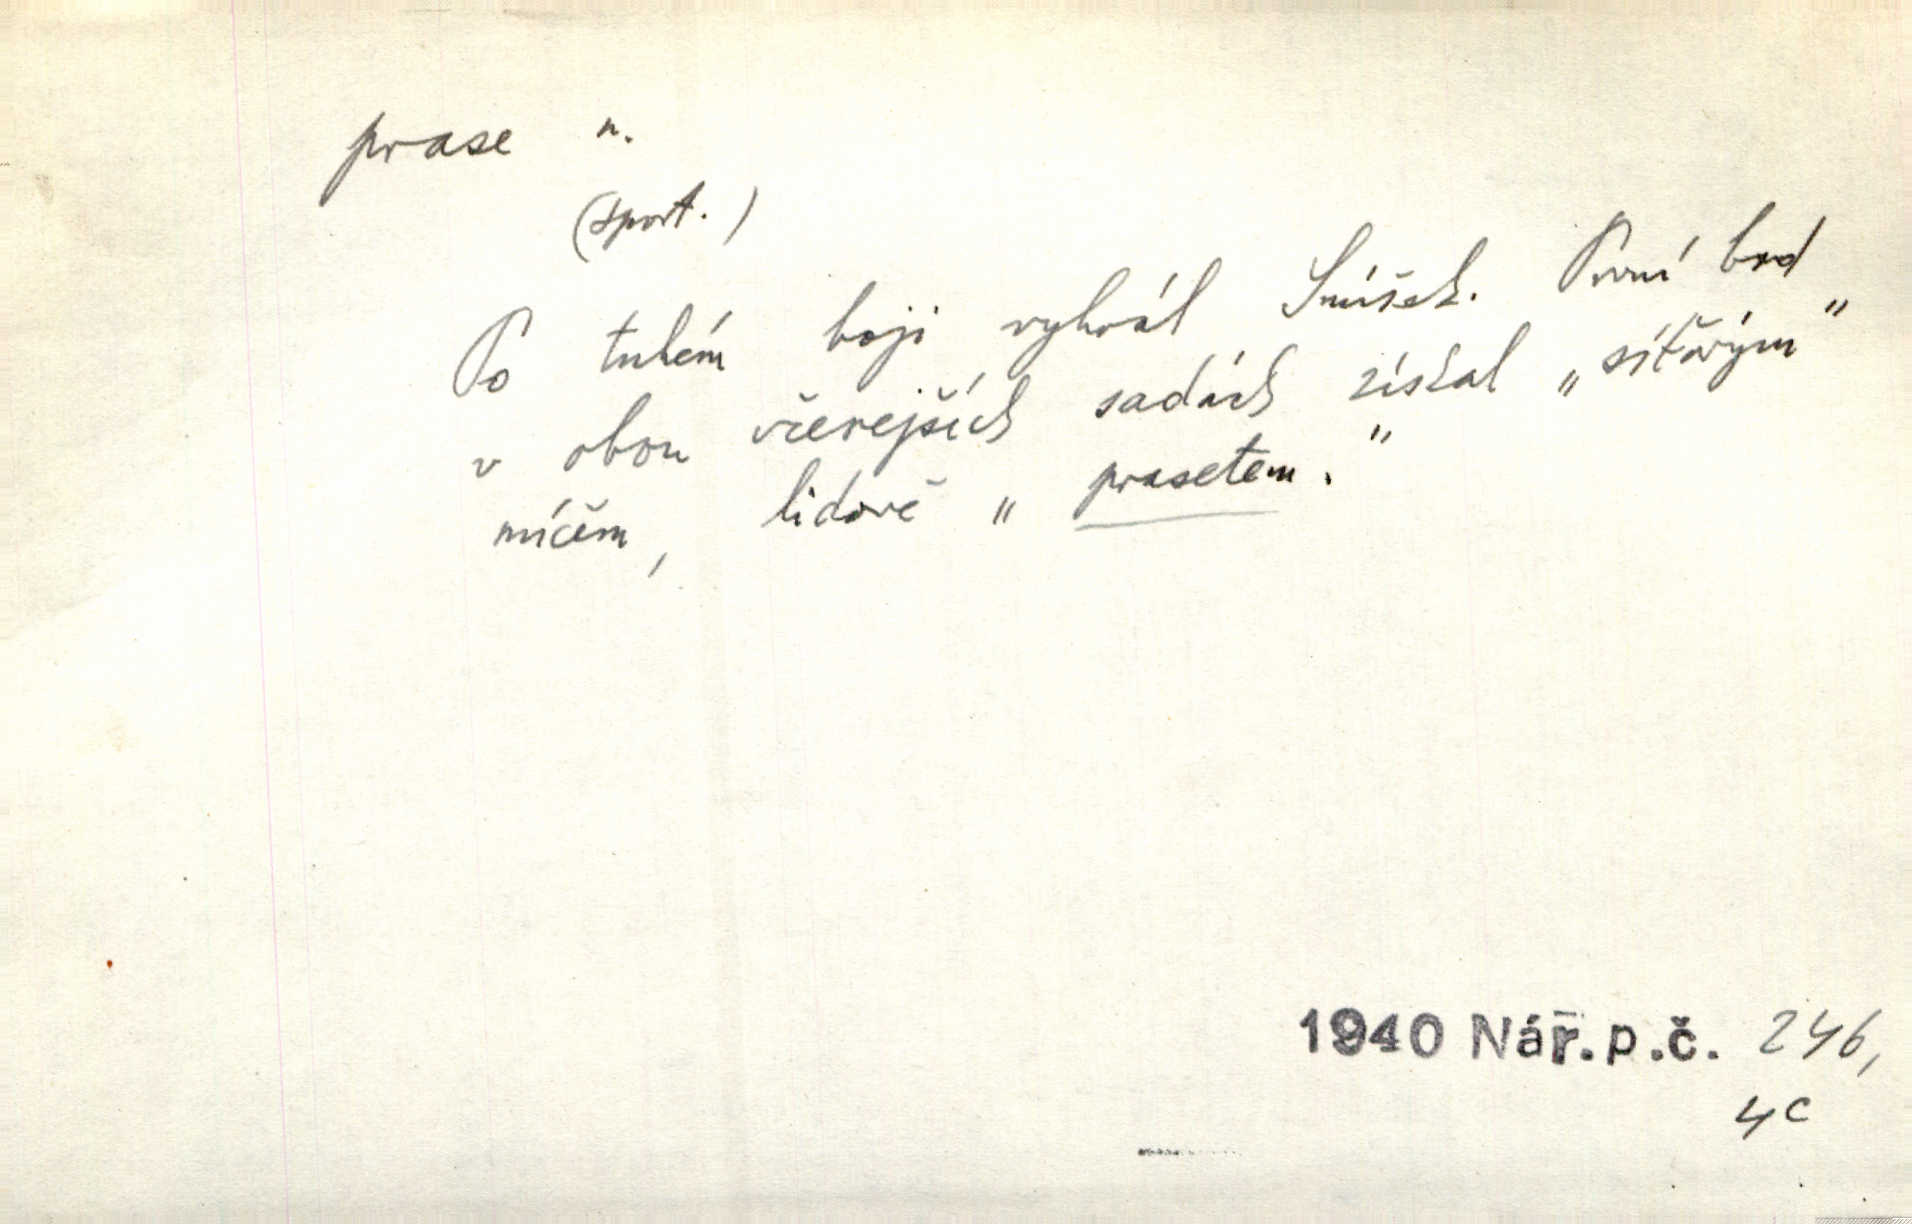 prase n.
(sport.)
Po tuhém boji vyhrál Smíšek. První bod
v obou včerejších sadách získal „síťovým"
míčem, lidově „prasetem."
1940 Nář.p.č. 246,
4c